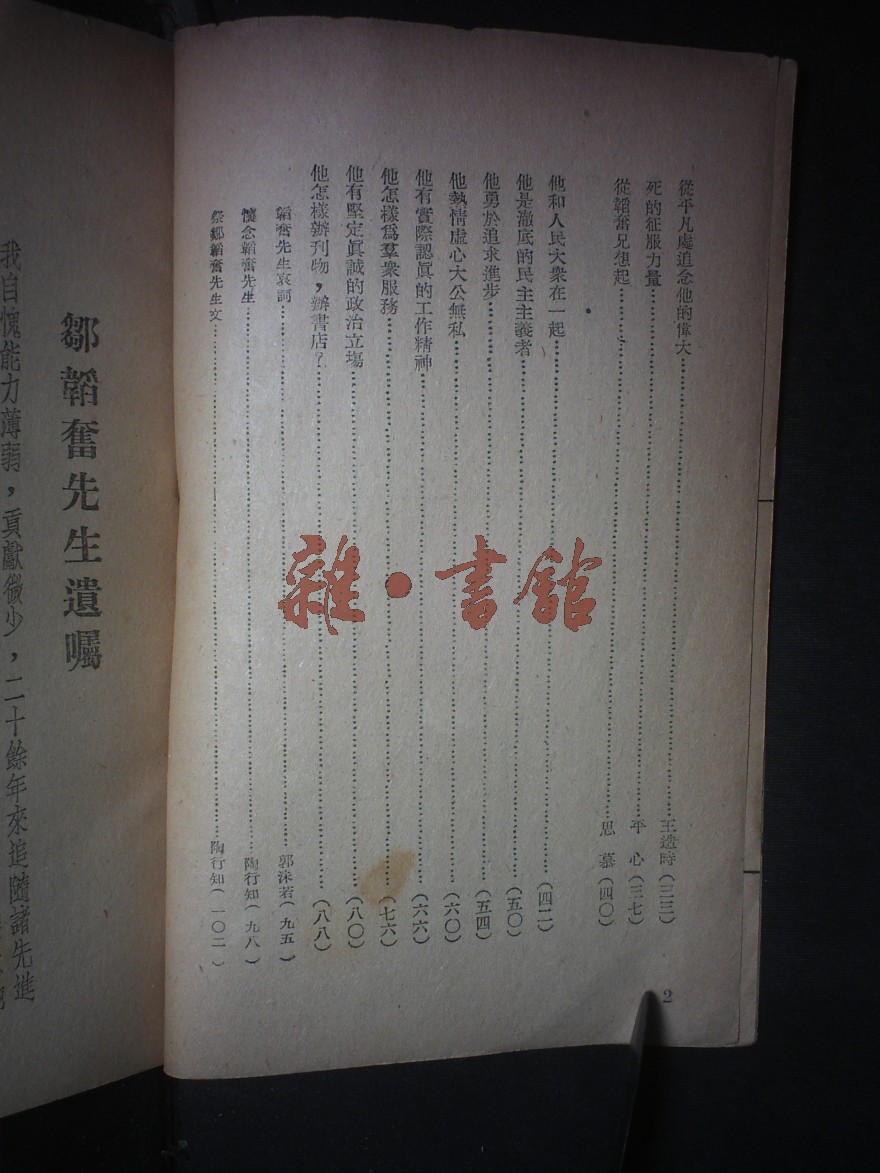 從平凡處追念他的偉大……王造時(三三)
死的征服力量……平 心(三七)
從韜奮兄想起……思 慕(四〇)
他和人民大衆在一起……(四二)
他是澈底的民主主義者……(五〇)
他勇於追求進步……(五四)
他熱情虛心大公無私……(六〇)
他有實際認眞的工作精神……(六六)
他怎樣爲羣衆服務……(七六)
他有堅定眞誠的政治立塲……(八〇)
他怎樣辦刊物，辦書店？……(八八)
韜奮先生哀詞……郭沫若(九五)
懷念韜奮先生……陶行知(九八)
祭鄒韜奮先生文……陶行知(一〇二)
2
鄒韜奮先生遺囑
我自愧能力薄弱，貢獻微少，二十餘年來追隨諸先進
雜·書館